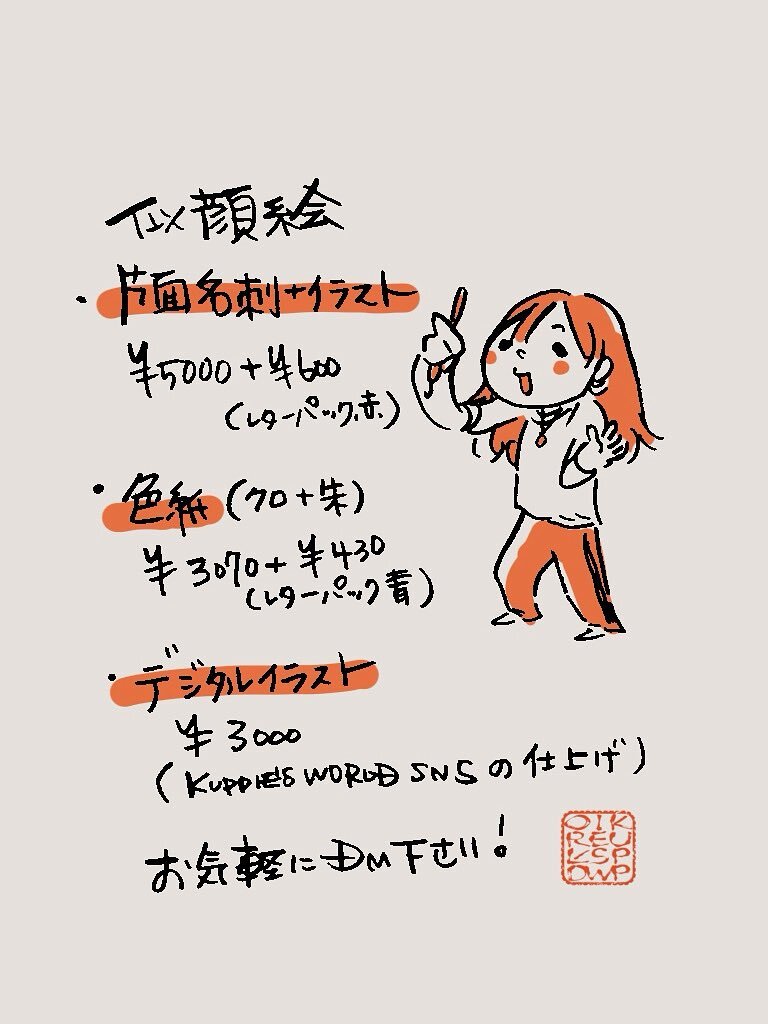 似顔絵
・片面名刺+イラスト
¥5000+¥600
(レターパック赤)
・色紙(クロ+朱)
¥3070+¥430
(レターパック青)
・デジタルイラスト
¥3000
(KUPPIE'S WORLD SNSの仕上げ)
お気軽にDM下さい!